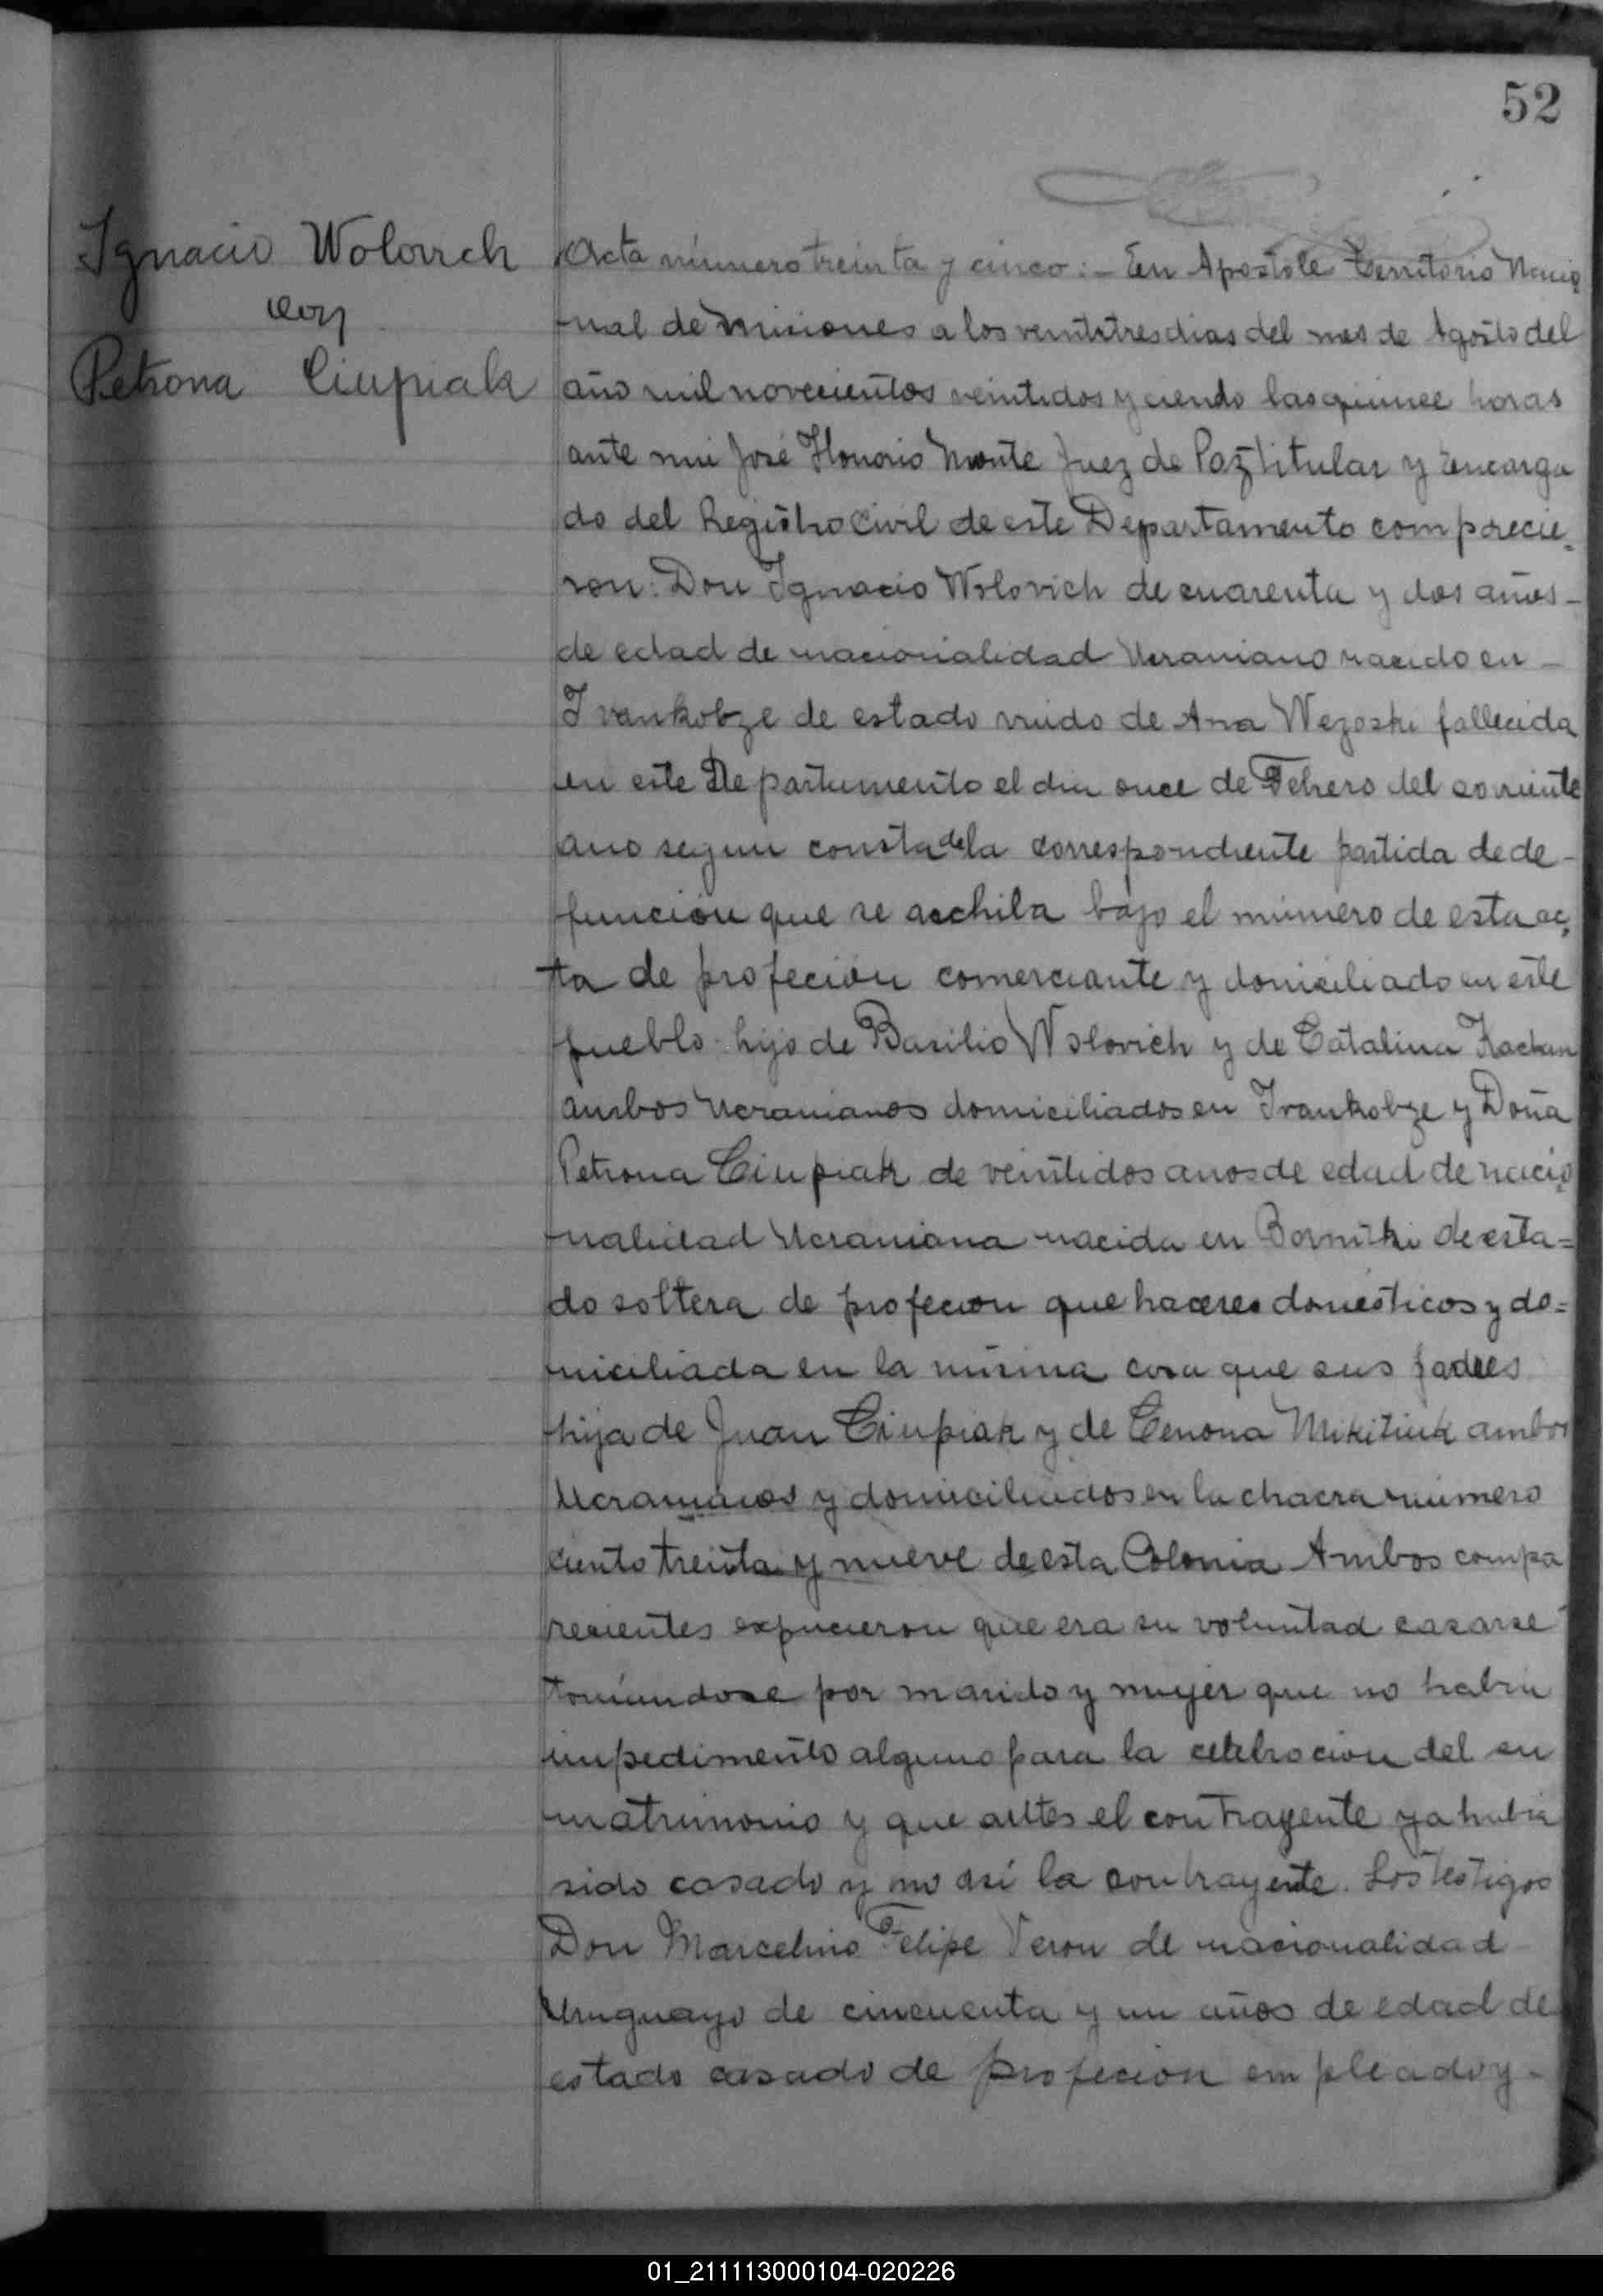 52
Ignacio Wolovich
con
Petrona Ciupiak
Acta número treinta y cinco:- En Apostole Territorio Nacio
nal de Misiones a los veintitres dias del mes de Agosto del
año mil novecientos veintidos y ciendo las quince horas
ante mi José Honorio Monte Juez de Paz titular y encarga
do del Registro Civil de este Departamento comparecie-
ron: Don Ignacio Wolovich de cuarenta y dos años-
de edad de nacionalidad Ucraniano nacido en-
Ivankobze de estado viudo de Ana Wezoski fallecida
en este Departamento el dia once de Febrero del corriente
ano segun consta de la correspondiente partida de de-
función que se archiba bajo el número de esta ac-
ta de profeción comerciante y domiciliado en este
pueblo hijo de Basilio Wolovich y de Catalina Kachan
ambos Ucranianos domiciliados en Ivankobze y Doña
Petrona Ciupiak de veintidos anos de edad de nacio
nalidad Ucraniana nacida en Bornitki de esta=
do soltera de profecion que haceres domésticos y do=
miciliada en la misma casa que sus padres
hija de Juan Ciupiak y de Cenona Mikitiuk ambos
Ucranianos y domiciliados en la chacra número
ciento treinta y nueve de esta Colonia Ambos compa
recientes expucieron que era su voluntad casarse
tomandose por marido y mujer que no habia
impedimento alguno para la celebracion del su
matrimonio y que antes el contrayente ya habia
sido casado y no así la contrayente. Los testigos
Don Marcelino Felipe Veron de nacionalidad
Uruguayo de cincuenta y un años de edad de
estado casado de profecion empleado y-
01_211113000104-020226